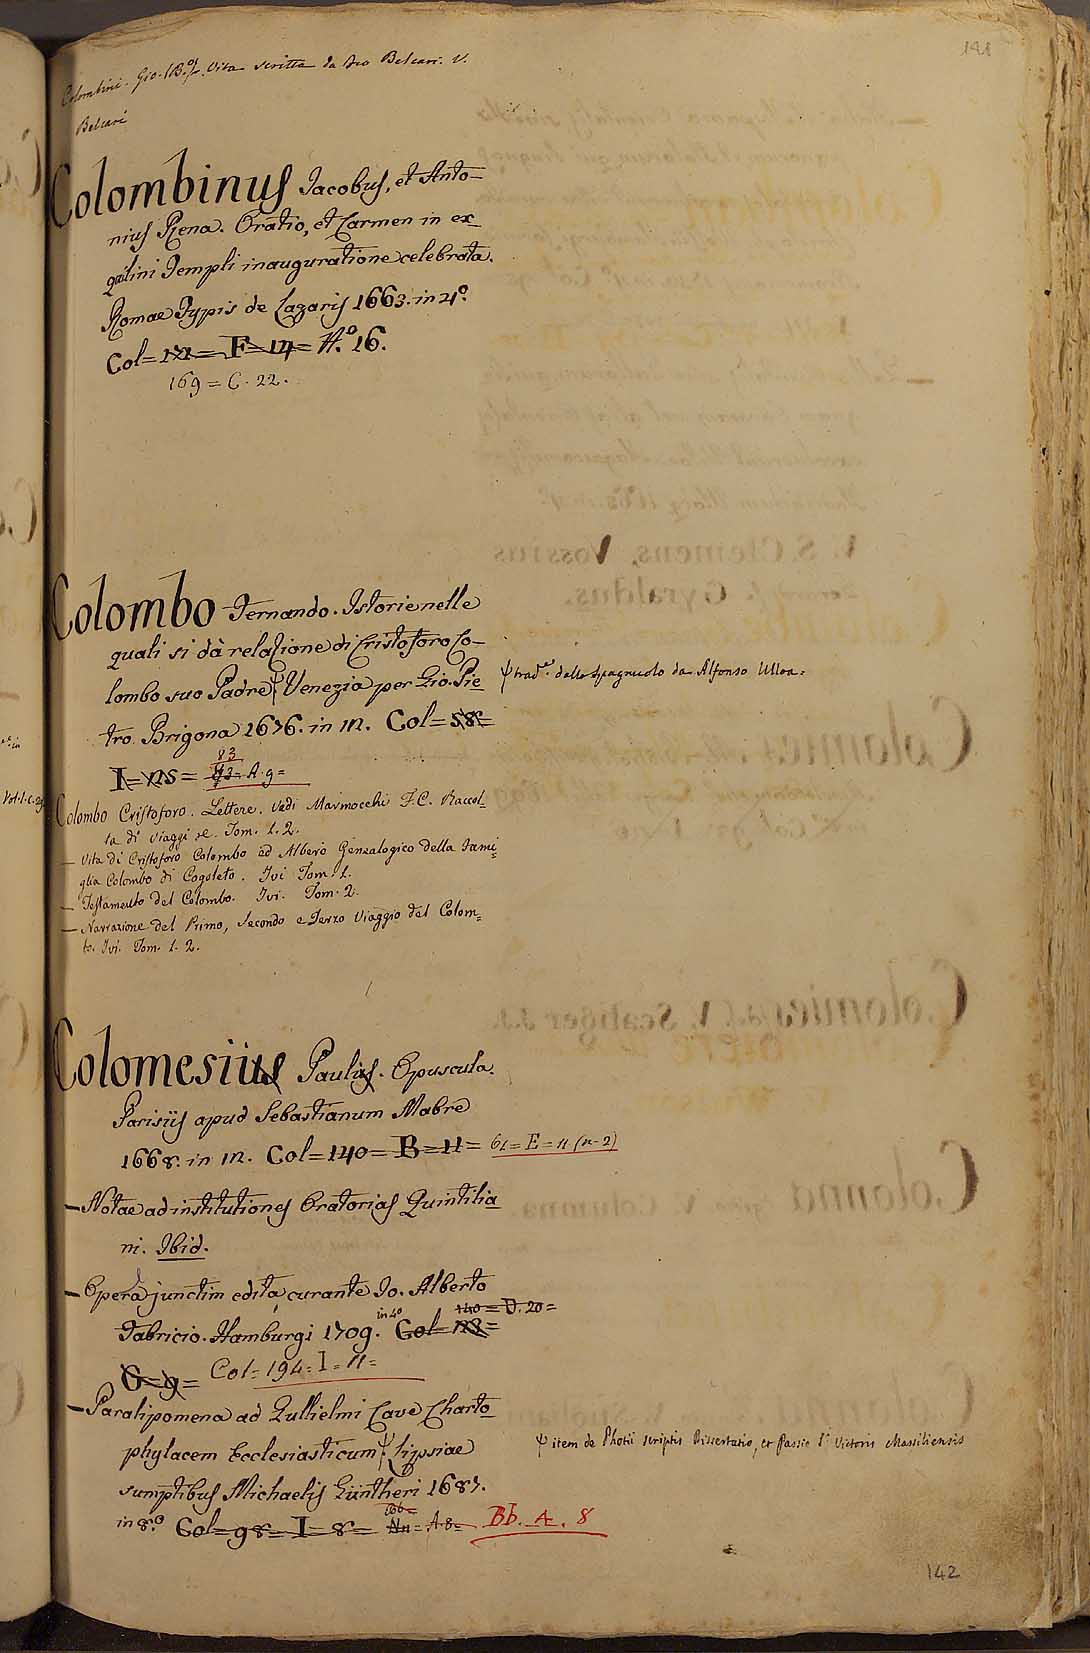 141
Colombini. Gio. Vita scritta da Feo Belcari. V.
Belcari
Colombinus Jacobus, et Anto-
nius Rena. Oratio, et Carmen in ex-
quilini Templi inauguratione celebrata.
Romae Typis de Lazaris 1663. in 4º.
Col= F= 14= N.º 16.
169 = C. 22.
Colombo Fernando. Istorie nelle
quali si dà relazione di Cristoforo Co-
lombo suo Padre ψ Venezia per Gio. Pie-
ψ trad.e dallo Spagnuolo da Alfonso Ulloa.
tro Brigona 1676. in 12. Col= 58=
83
I= 93= A. 9=
Vol. 1. c. 29
Colombo Cristoforo. Lettere. Vedi Marmocchi F. C. Raccol-
ta di viaggi ec. Tom. 1. 2.
— Vita di Cristoforo Colombo ed Albero Genealogico della Fami-
glia Colombo di Cogoleto. Ivi Tom. 1.
— Testamento del Colombo. Ivi. Tom. 2.
— Narrazione del Primo, Secondo e Terzo Viaggio del Colom=
bo. Ivi. Tom. 1. 2.
Colomesiius Paulus. Opuscula.
Parisiis apud Sebastianum Mabre
1668. in 12. Col= 140= B= 11= 61= E= 11 (n-2)
— Notae ad institutiones Oratorias Quintilia
ni. Ibid.
— Opera junctim edita, curante Jo. Alberto
Fabricio. Hamburgi 1709. in 4º Col= 140= D. 20=
G= 9= Col= 194= I= 11=
— Paralipomena ad Gullielmi Cave Charto
phylacem Ecclesiasticum ψ Lipsiae
ψ item de Photii scriptis Dissertatio, et Passio S. Victoris Massiliensis
sumptibus Michaelis Güntheri 1687.
in 8.º Col= 98= I= 8= A. 8= Bb. A. 8
142